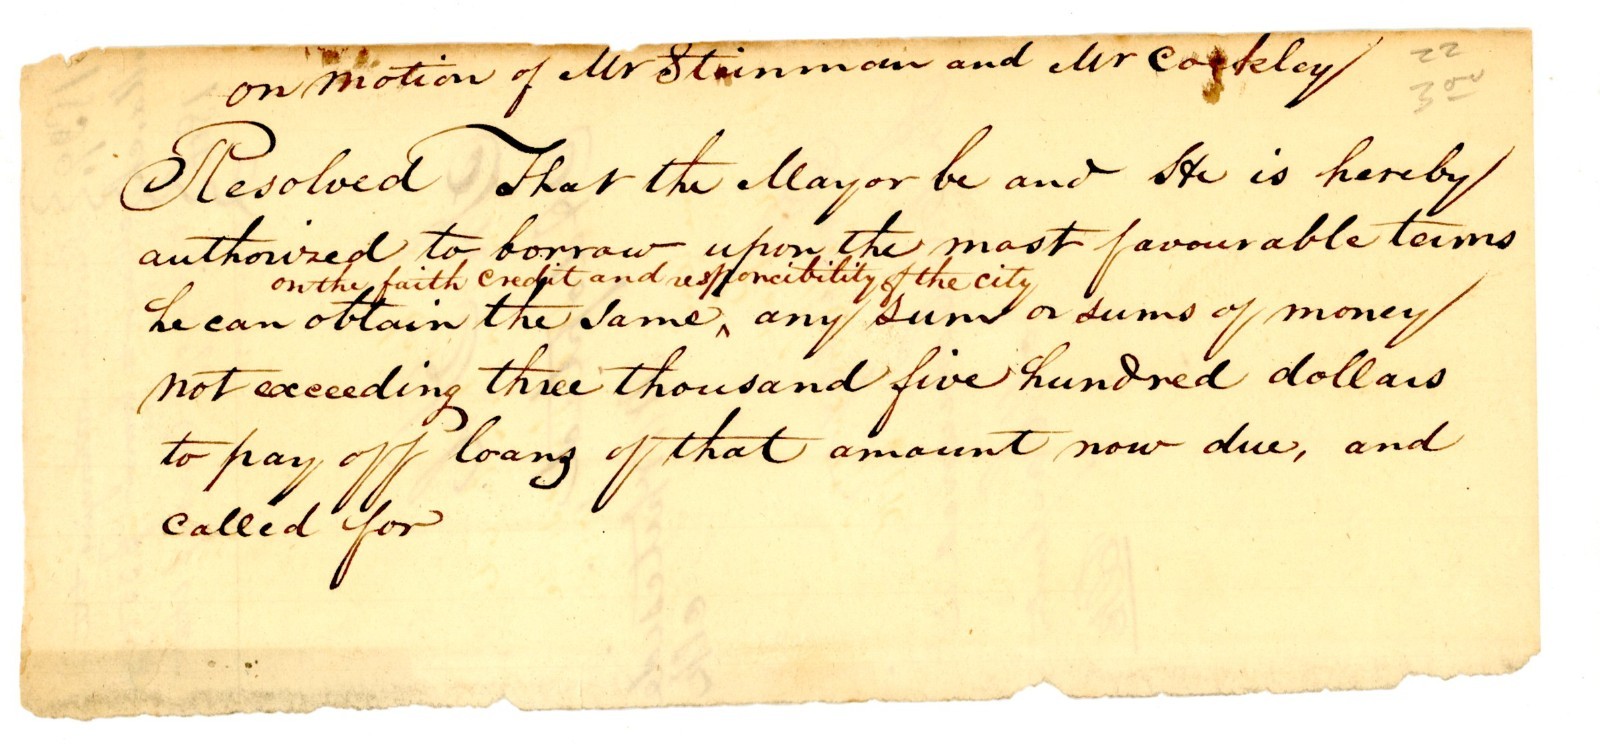 on motion of Mr Steinman and Mr Coekley
22
3 00
Resolved That the Mayor be and He is hereby
authorized to borrow upon the most favourable terms
on the faith credit and responcibility of the city
he can obtain the same ^ any sum or sums of money
not exceeding three thousand five hundred dollars
to pay off loans of that amount now due, and
called for